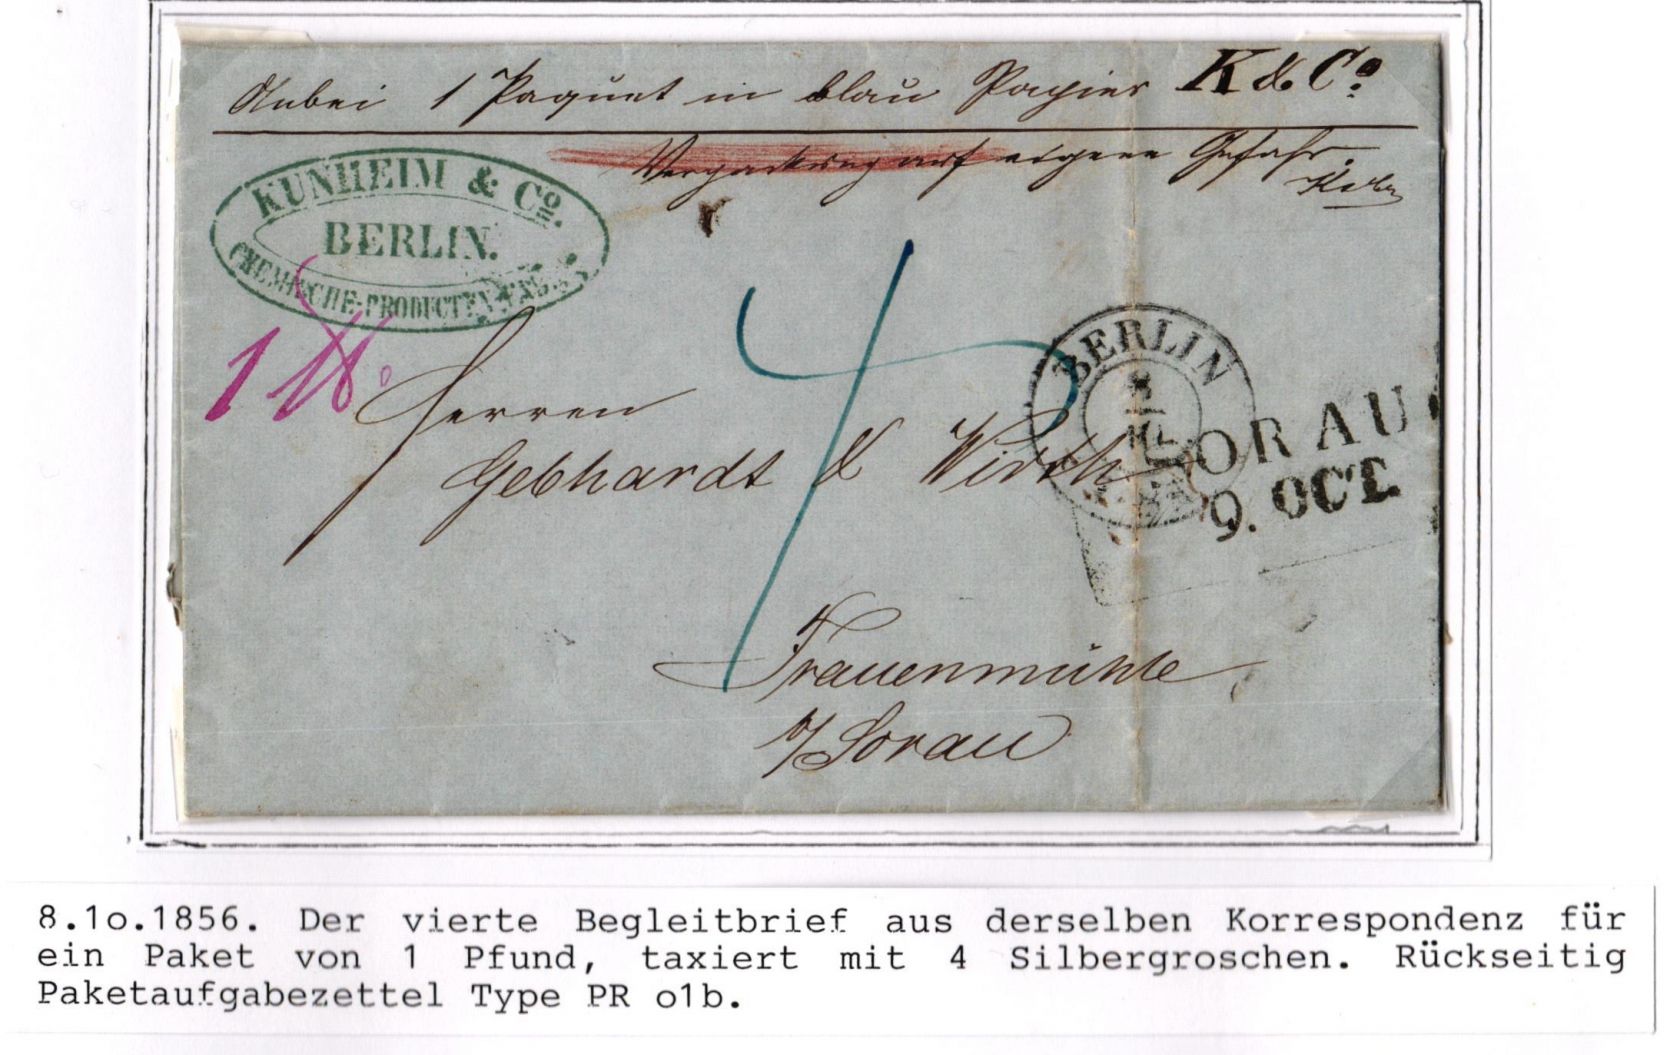 Anbei 1 Paquet in blau Papier K & Co.
Verpackung auf eigene Gefahr.
KUNHEIM & Co.
BERLIN.
CHEMISCHE-PRODUCTEN
1 ℔.
4
BERLIN
8
10
SORAU
9. OCT.
Herren
Gebhardt & Wirth
Frauenmühle
b/Sorau
8.1o.1856. Der vierte Begleitbrief aus derselben Korrespondenz für
ein Paket von 1 Pfund, taxiert mit 4 Silbergroschen. Rückseitig
Paketaufgabezettel Type PR o1b.